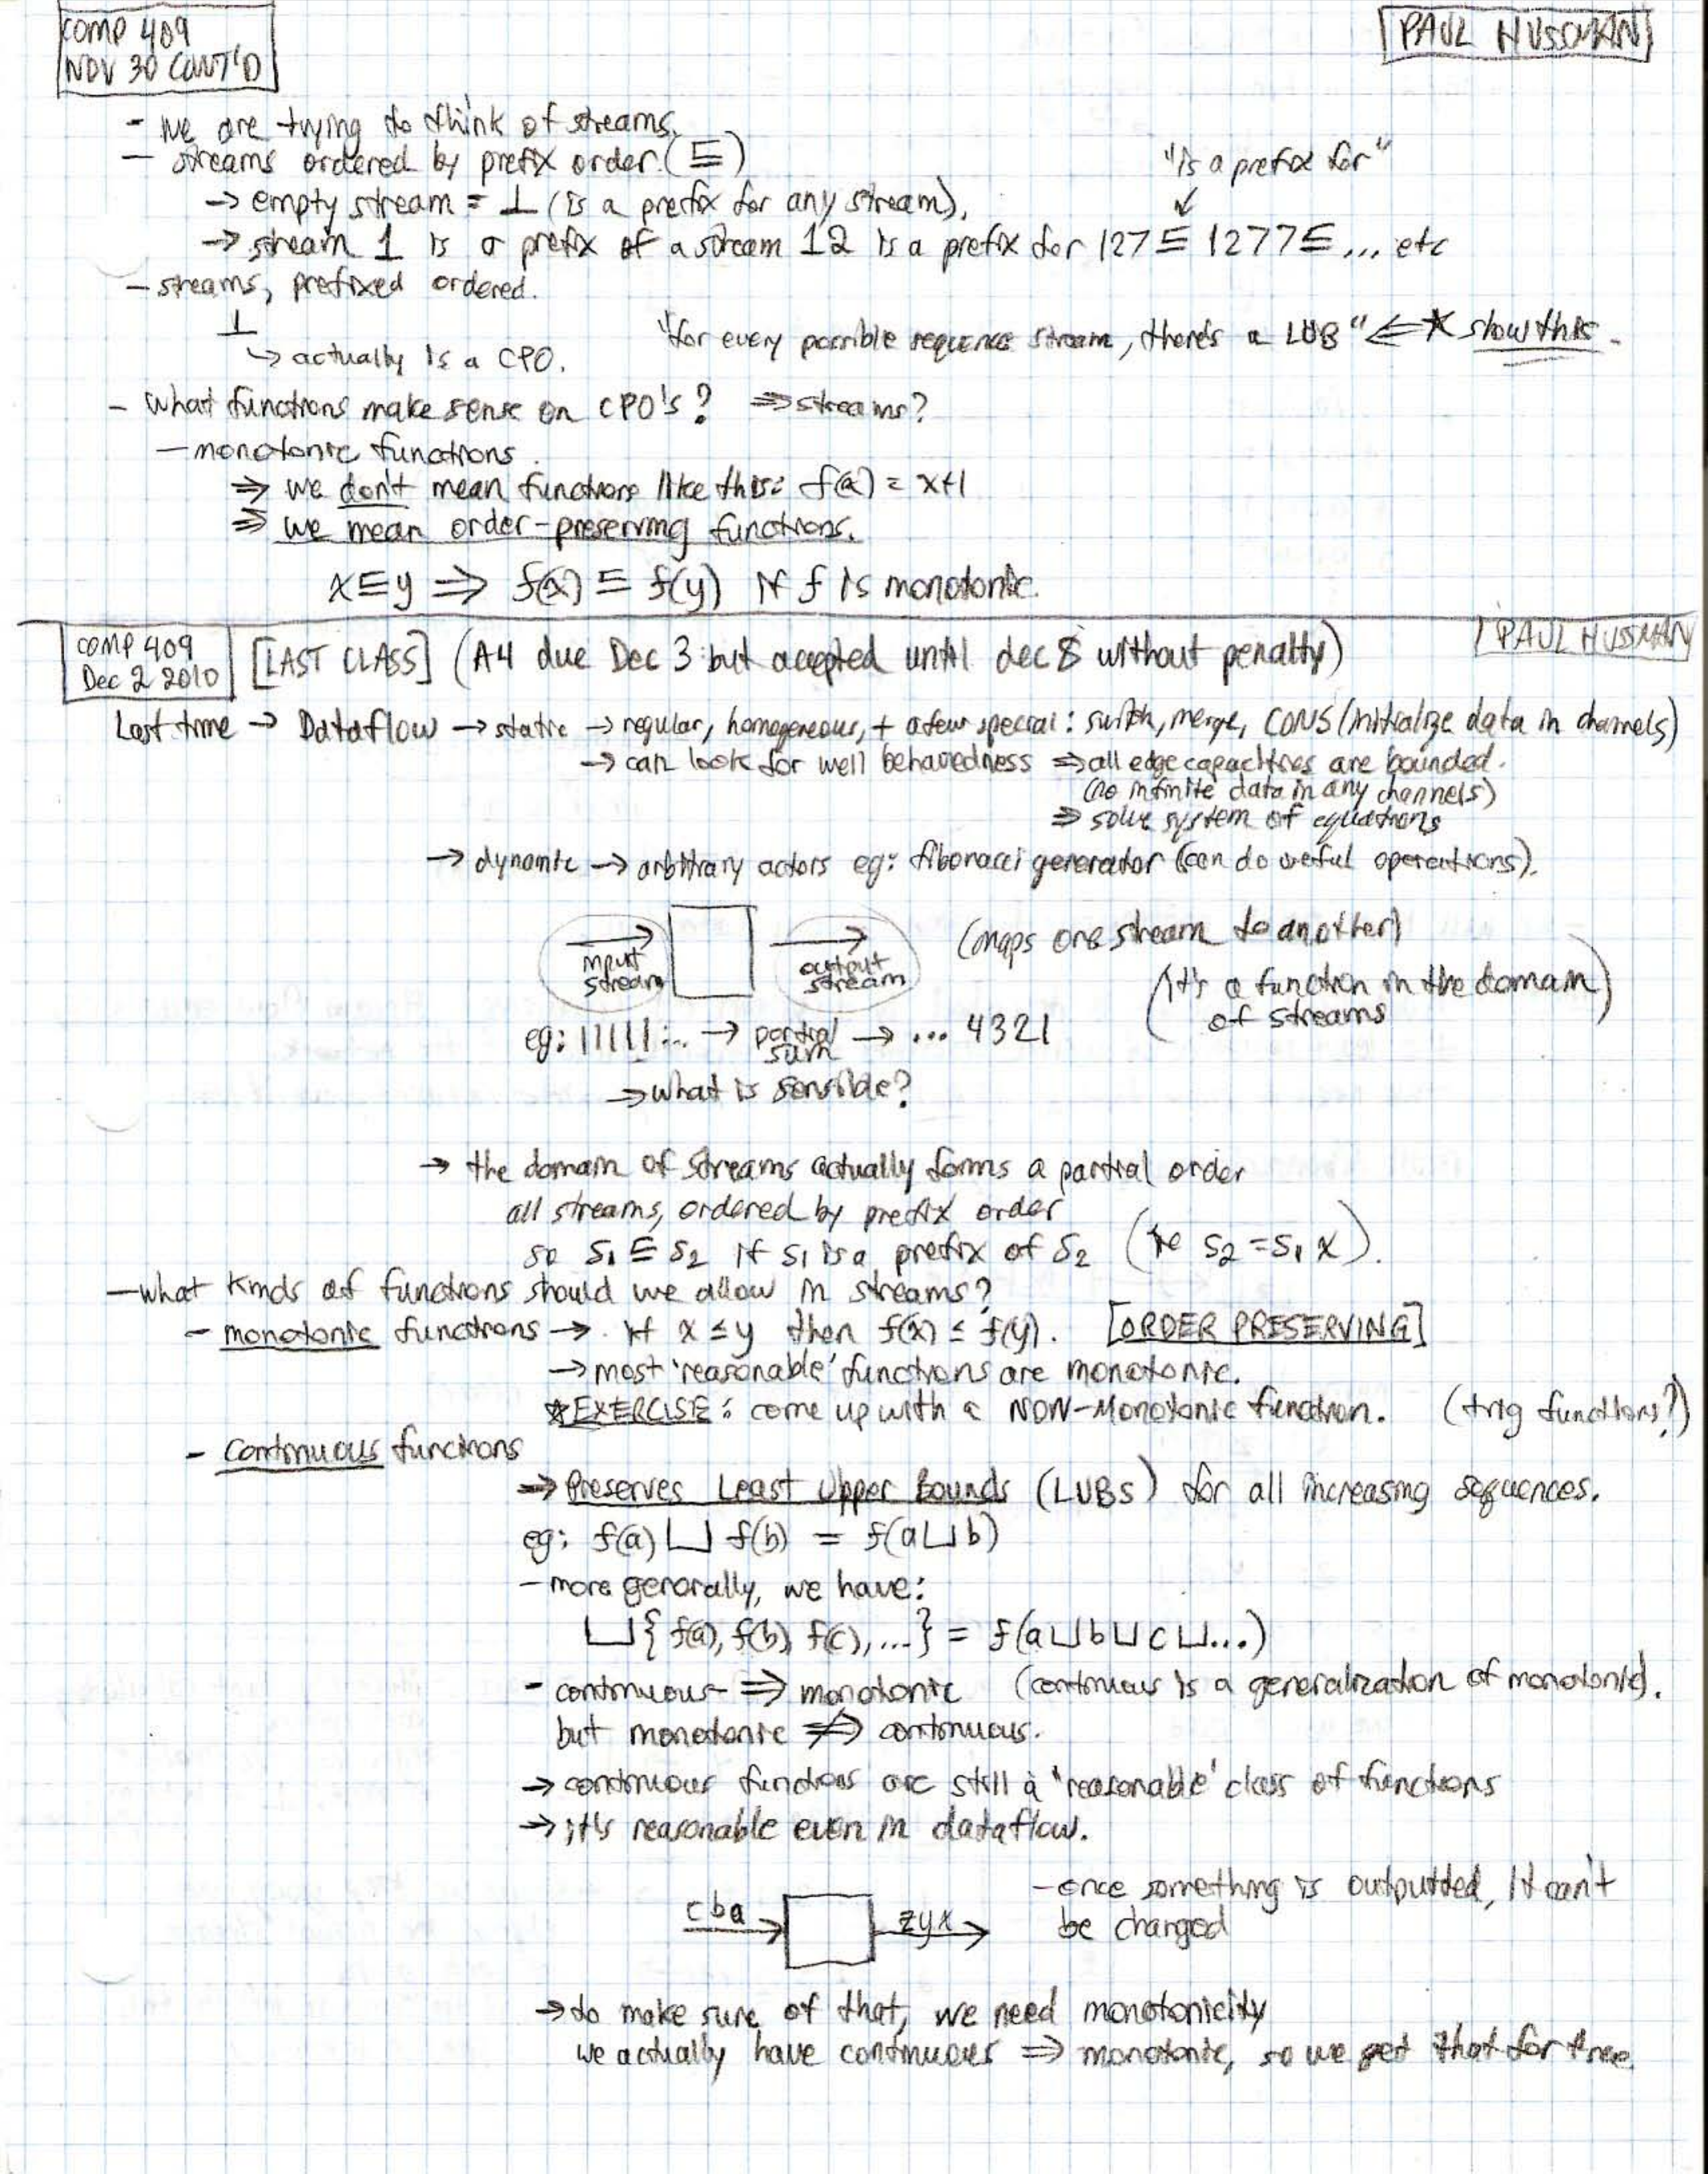 COMP 409
NOV 30 CONT'D
PAUL HUSSMAN
- we are trying to think of streams.
- streams ordered by prefix order. (⊑)
"is a prefix for"
→ empty stream = ⊥ (is a prefix for any stream).
→ stream 1 is a prefix of a stream 12 is a prefix for 127 ⊑ 1277 ⊑ ... etc
- streams, prefixed ordered.
⊥
↳ actually is a CPO.
"for every possible sequence stream, there's a LUB" ⇐ ★ show this.
- what functions make sense on CPO's? ⇒ streams?
- monotonic functions.
⇒ we don't mean functions like this: f(x) = x+1
⇒ we mean order-preserving functions.
x ⊑ y ⇒ f(x) ⊑ f(y) if f is monotonic.
COMP 409
Dec 2 2010
[LAST CLASS] (A4 due Dec 3 but accepted until dec 8 without penalty)
PAUL HUSSMAN
Last time → Dataflow → static → regular, homogeneous, + a few special: switch, merge, CONS (initialize data in channels)
→ can look for well behavedness ⇒ all edge capacities are bounded.
(no infinite data in any channels)
⇒ solve system of equations
→ dynamic → arbitrary actors eg: fibonacci generator (can do useful operations).
input
stream
output
stream
(maps one stream to another)
(it's a function in the domain
of streams)
eg: 11111... → partial sum → ... 4321
→ what is sensible?
→ the domain of streams actually forms a partial order
all streams, ordered by prefix order
so S₁ ⊑ S₂ if S₁ is a prefix of S₂ (ie S₂ = S₁ x).
- what kinds of functions should we allow in streams?
- monotonic functions → if x ≤ y then f(x) ≤ f(y). [ORDER PRESERVING]
→ most 'reasonable' functions are monotonic.
★EXERCISE: come up with a NON-Monotonic function. (trig functions?)
- continuous functions
⇒ Preserves Least Upper Bounds (LUBs) for all increasing sequences.
eg: f(a) ⊔ f(b) = f(a ⊔ b)
- more generally, we have:
⊔{f(a), f(b), f(c), ...} = f(a ⊔ b ⊔ c ⊔ ...)
- continuous ⇒ monotonic (continuous is a generalization of monotonic).
but monotonic ⇏ continuous.
→ continuous functions are still a 'reasonable' class of functions
→ it's reasonable even in dataflow.
c b a
z y x
- once something is outputted, it can't
be changed
→ to make sure of that, we need monotonicity
we actually have continuous ⇒ monotonic, so we get that for free.